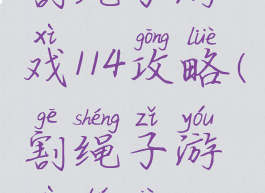 xì gōng lüè
戏114攻略(
gē shéng zǐ yóu
割绳子游